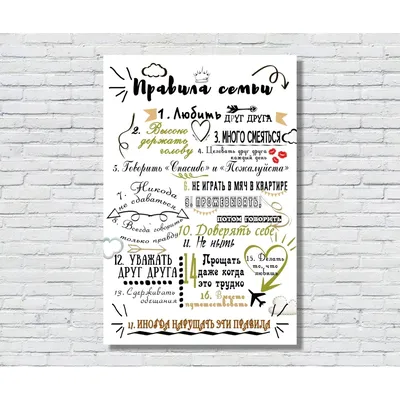 Правила семьи
1. Любить
друг друга
2. Высоко
держать
голову
3. МНОГО СМЕЯТЬСЯ
4. Целовать друг друга
каждый день
5. Говорить «Спасибо» и «Пожалуйста»
6. НЕ ИГРАТЬ В МЯЧ В КВАРТИРЕ
7. Никогда
не сдаваться
8. ПРОЖЕВЫВАТЬ,
ПОТОМ ГОВОРИТЬ
9. Всегда говорить
только правду
10. Доверять себе
11. Не ныть
12. УВАЖАТЬ
ДРУГ ДРУГА
13. Сдерживать
обещания
14 Прощать
даже когда
это трудно
15. Делать
то, что
любишь
16. Вместе
путешествовать
17. ИНОГДА НАРУШАТЬ ЭТИ ПРАВИЛА